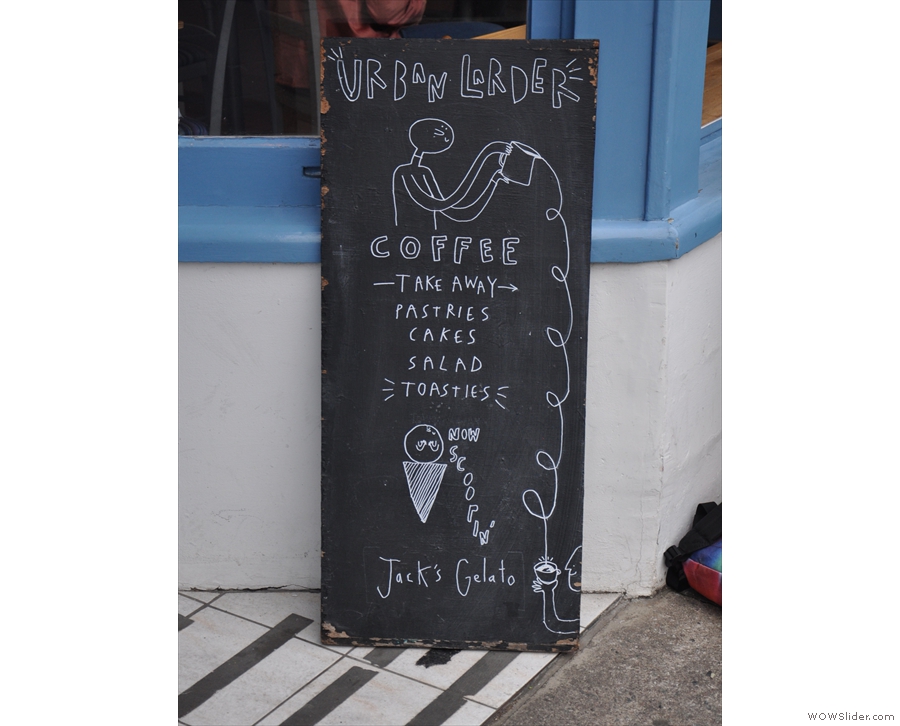 URBAN LARDER
COFFEE
TAKE AWAY
PASTRIES
CAKES
SALAD
TOASTIES
NOW
SCOOPIN'
Jack's Gelato
WOWSlider.com